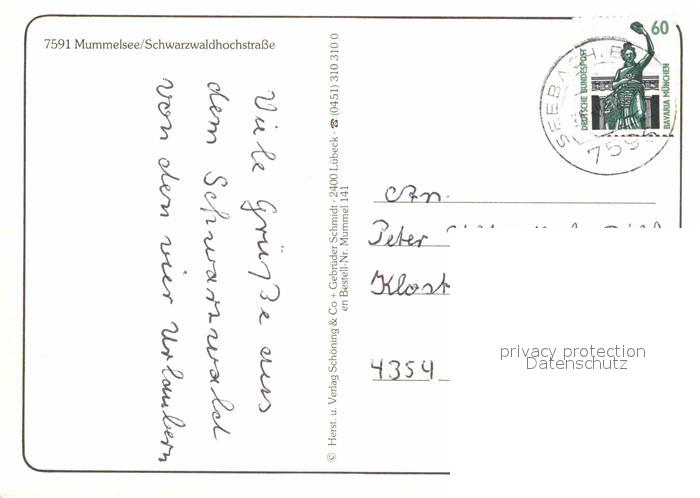 7591 Mummelsee/Schwarzwaldhochstraße
Viele Grüße aus
dem Schwarzwald
von den vier Urlaubern
© Herst. u. Verlag Schöning & Co + Gebrüder Schmidt · 2400 Lübeck · ☎ (0451) 310 310 0
en Bestell-Nr. Mummel 141
60
DEUTSCHE BUNDESPOST
BAVARIA MÜNCHEN
SEEBACH, B
759
An.
Peter
Klost
4354
privacy protection
Datenschutz